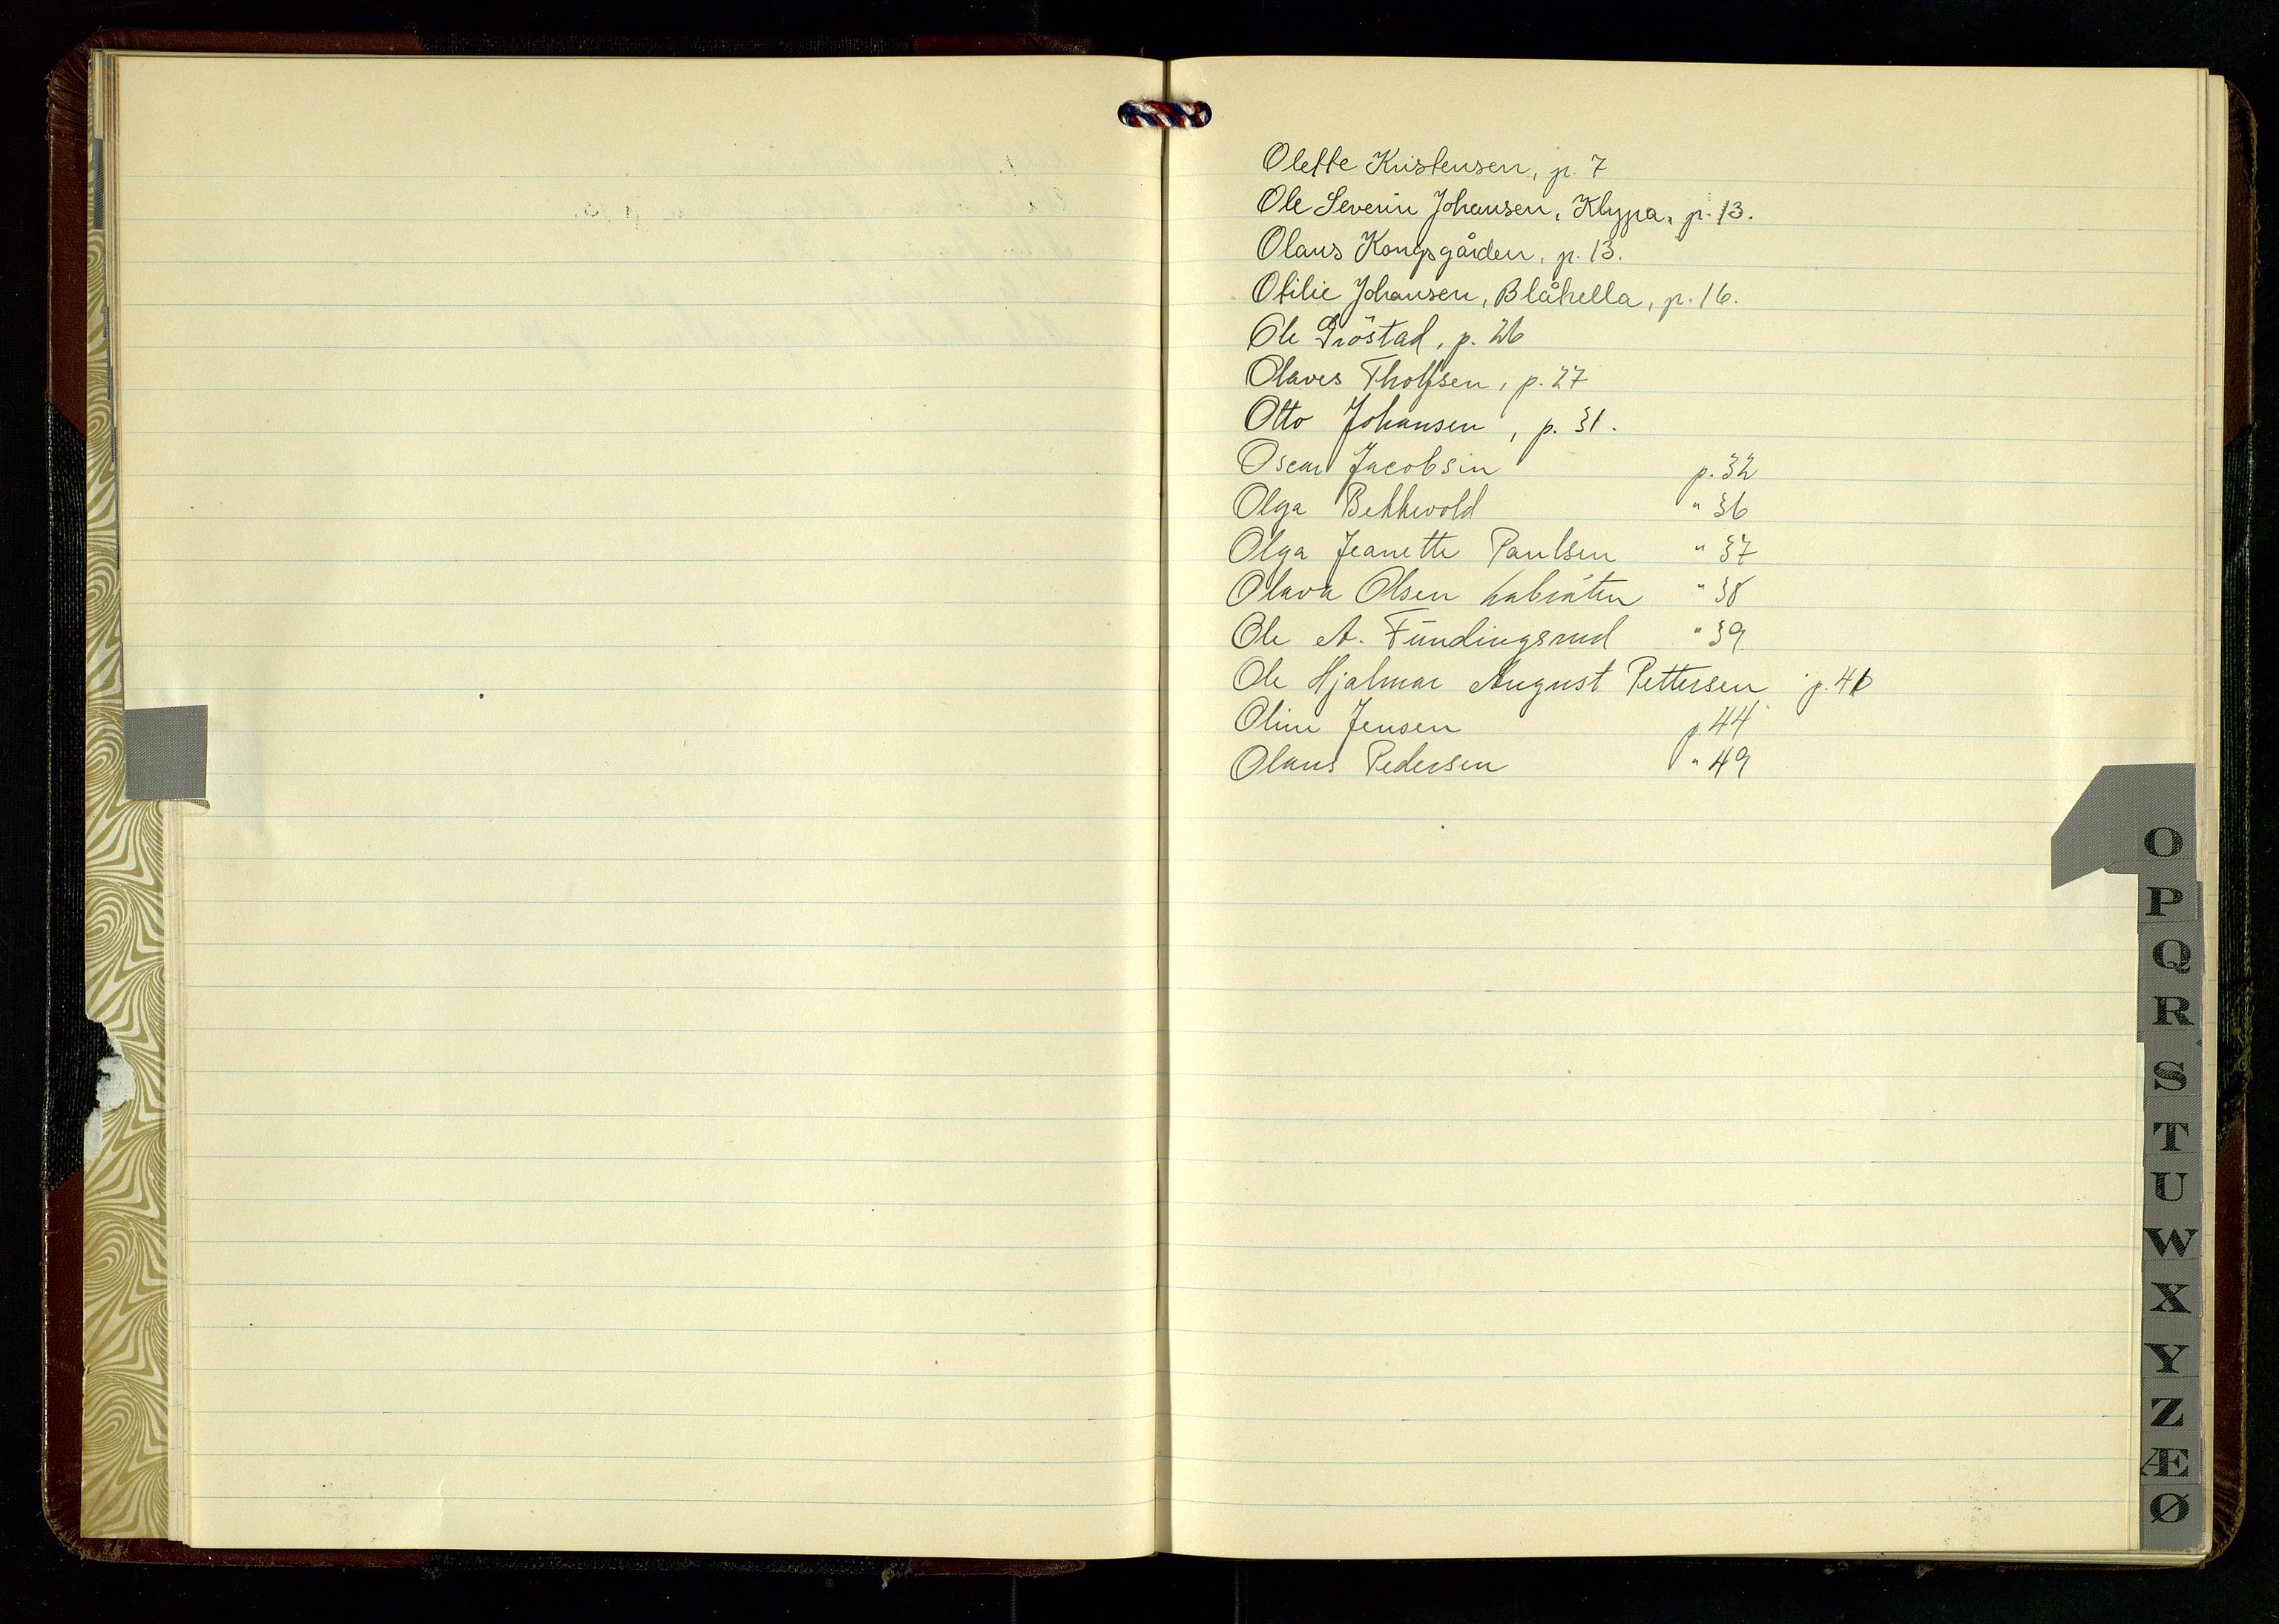 Olette Kristensen, p. 7
Ole Severin Johansen, Klypa, p. 13.
Olaus Kongsgården, p. 13.
Otilie Johansen, Blåhella, p. 16.
Ole Gröstad, p. 26
Olaves Tholfsen, p. 27
Otto Johansen, p. 31.
Oscar Jacobsen p. 32
Olga Bekkevold " 36
Olga Jeanette Paulsen " 37
Olava Olsen " 38
Ole A. Fundingsrud " 39
Ole Hjalmar August Pettersen p. 41
Oline Jensen p. 44
Olaus Pedersen " 49
O
P
Q
R
S
T
U
W
X
Y
Z
Æ
Ø